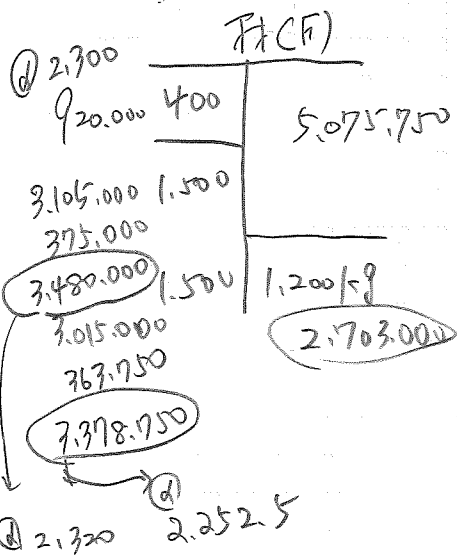 材(F)
@ 2,300
920.000 400
5.075.750
3.105.000 1.500
375.000
3.480.000 1.500
1,200kg
3.015.000
2.703.000
363.750
3.378.750
@ 2,320
@ 2.252.5